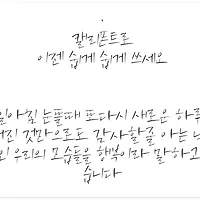 캘리폰트로
이젠 쉽게 쉽게 쓰세요
일아침 눈뜰때 또다시 새로운 하루
어진 것만으로도 감사할줄 아는
우리의 모습들을 행복이라 말하고
습니다